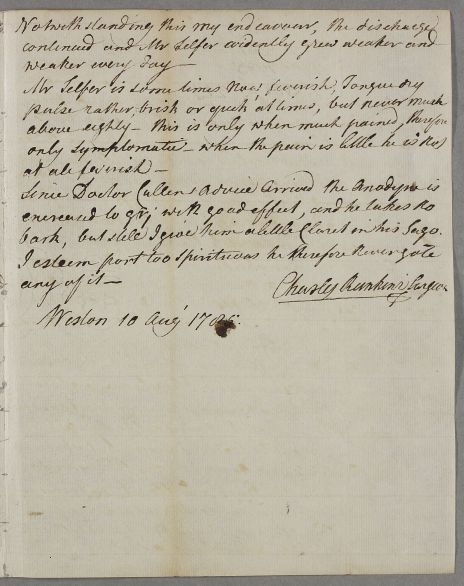 Notwithstanding this my endeavour, the discharge
continued and Mr Selfer evidently grew weaker and
weaker every day —
Mr Selfer is some times now feverish, Tongue dry
pulse rather brisk or quick at times, but never much
above eighty — this is only when much pained, therefore
only symptomatic — when the pain is little he is no
at all feverish —
Since Doctor Cullens advice arrived the Anodyne is
encreased to gr with good effect, and he takes no
bark, but still I give him a little Claret in his Sago.
I esteem port too spirituous he therefore never gote
any of it —
Charles Rankine Surgeon
Weston 10 Augt